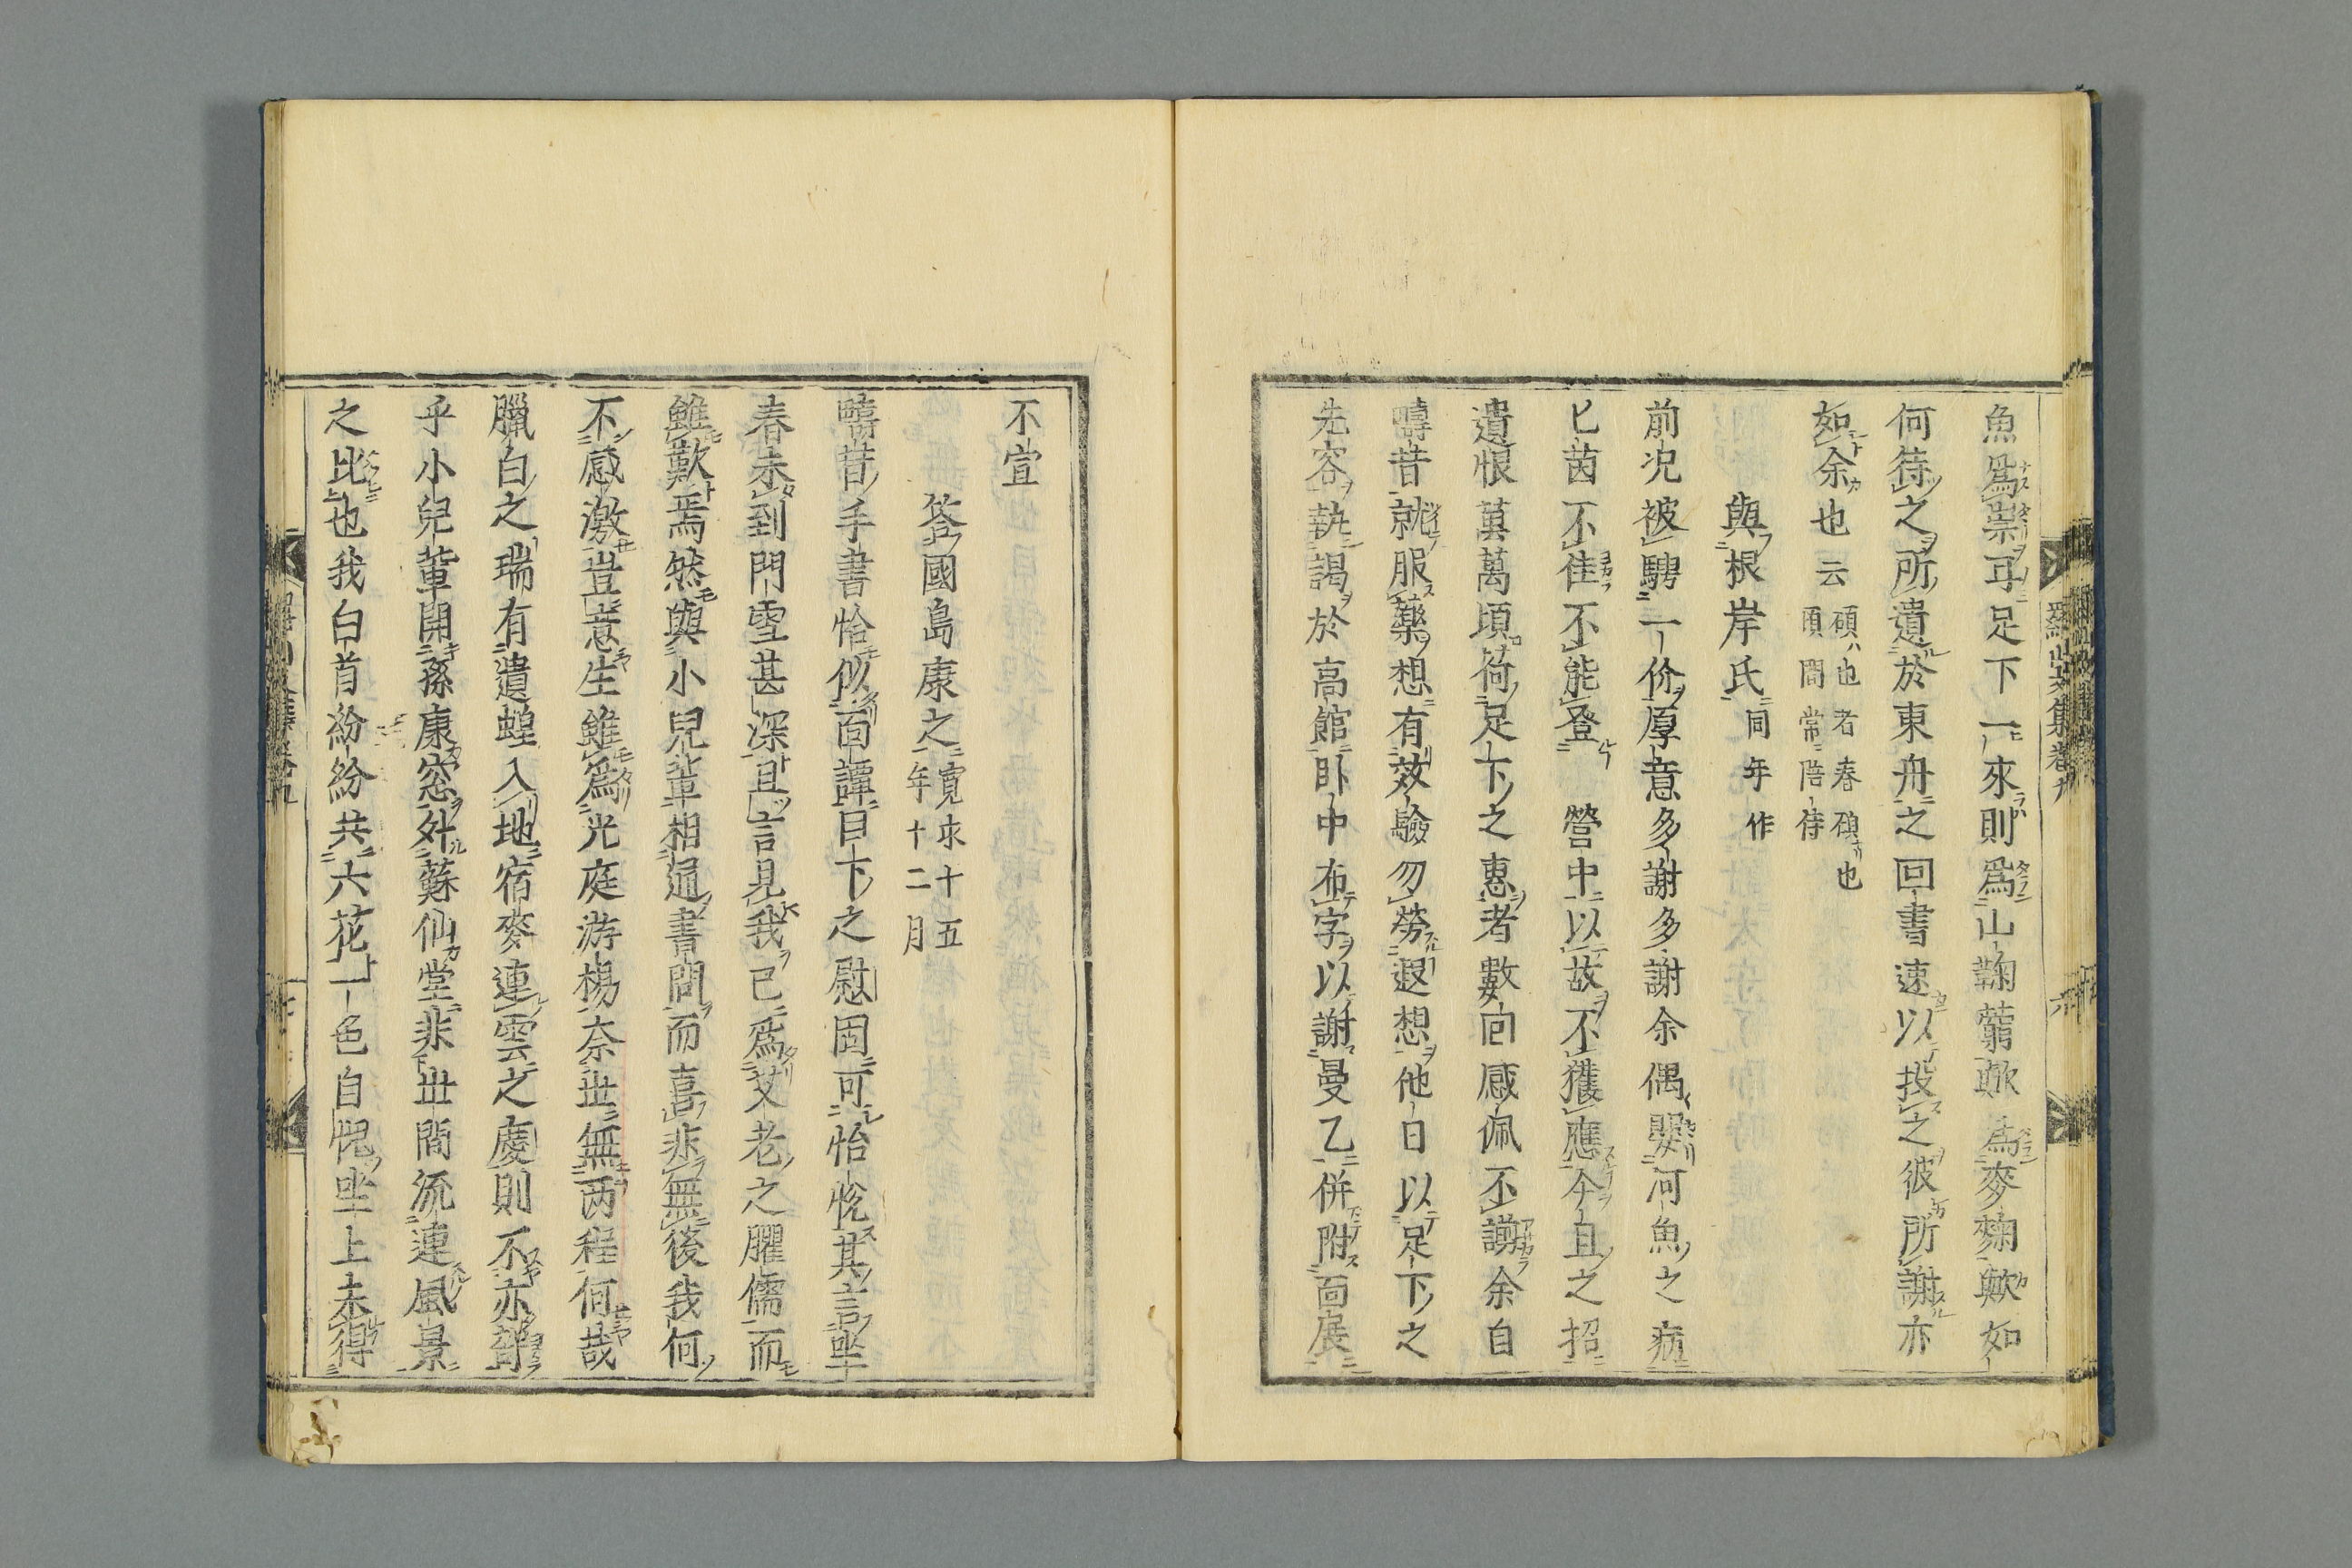 魚爲祟耳足下一來則爲山鞠藭歟爲麥麹歟如
何待之所遺於東舟之回書速以投之彼所謝亦
如余也云
碩也者春碩也
頃間常陪侍
與根岸氏同年作
前况被騁一价厚意多謝多謝余偶嬰河魚之病
匕茵不佳不能登 營中以故不獲應今且之招
遺恨萬萬頃荷足下之惠者數回感佩不讃余自
疇昔就服藥想有效驗勿勞遐想他日以足下之
先容執謁於高館卧中布字以謝曼乙併附面展
不宣
答國島康之
寛永十五
年十二月
疇昔手書恰似面譚目下之慰固可怡悅其言坐
春未到門雪甚深且言見我已爲艾老之臞儒而
雖歎焉然與小兒輩相通書問而喜非無後我何
不感激豈意生雖爲光庭游楊奈世無两程何哉
臘白之瑞有遺蝗入地宿麥連雲之慶則不亦韙
乎小兒輩開孫康窓外蘇仙堂非世間流連風景
之比也我白首紛紛共六花一色自愧坐上未得
羅山文集卷九
六